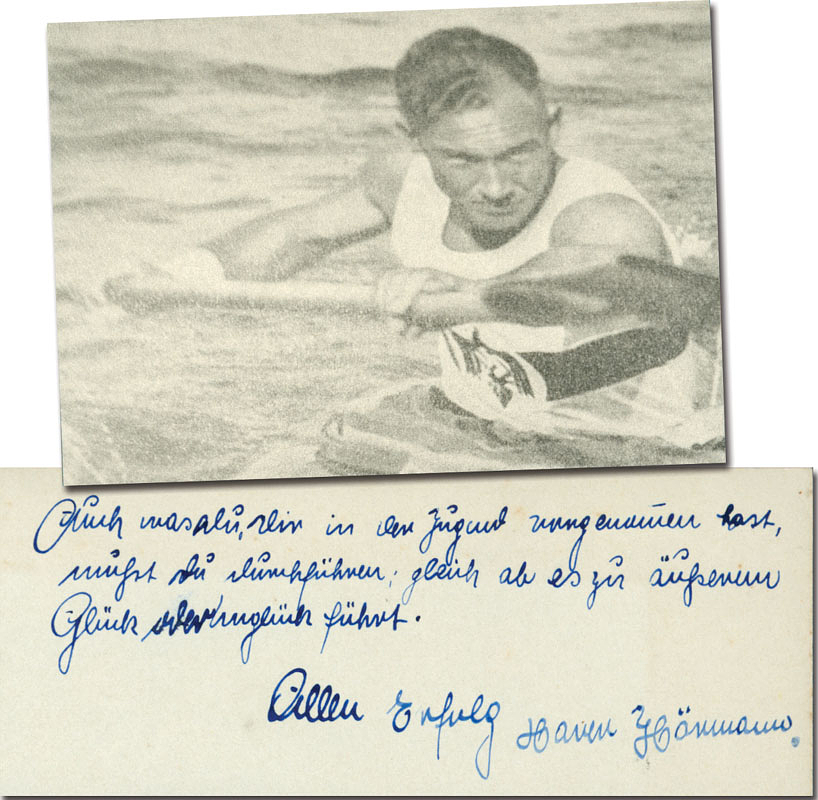 Auch was du, Dir in der Jugend vorgenommen hast,
mußt du durchführen, gleich ob es zu äußerem
Glück oder Unglück führt.
Allen Erfolg Hörmann.